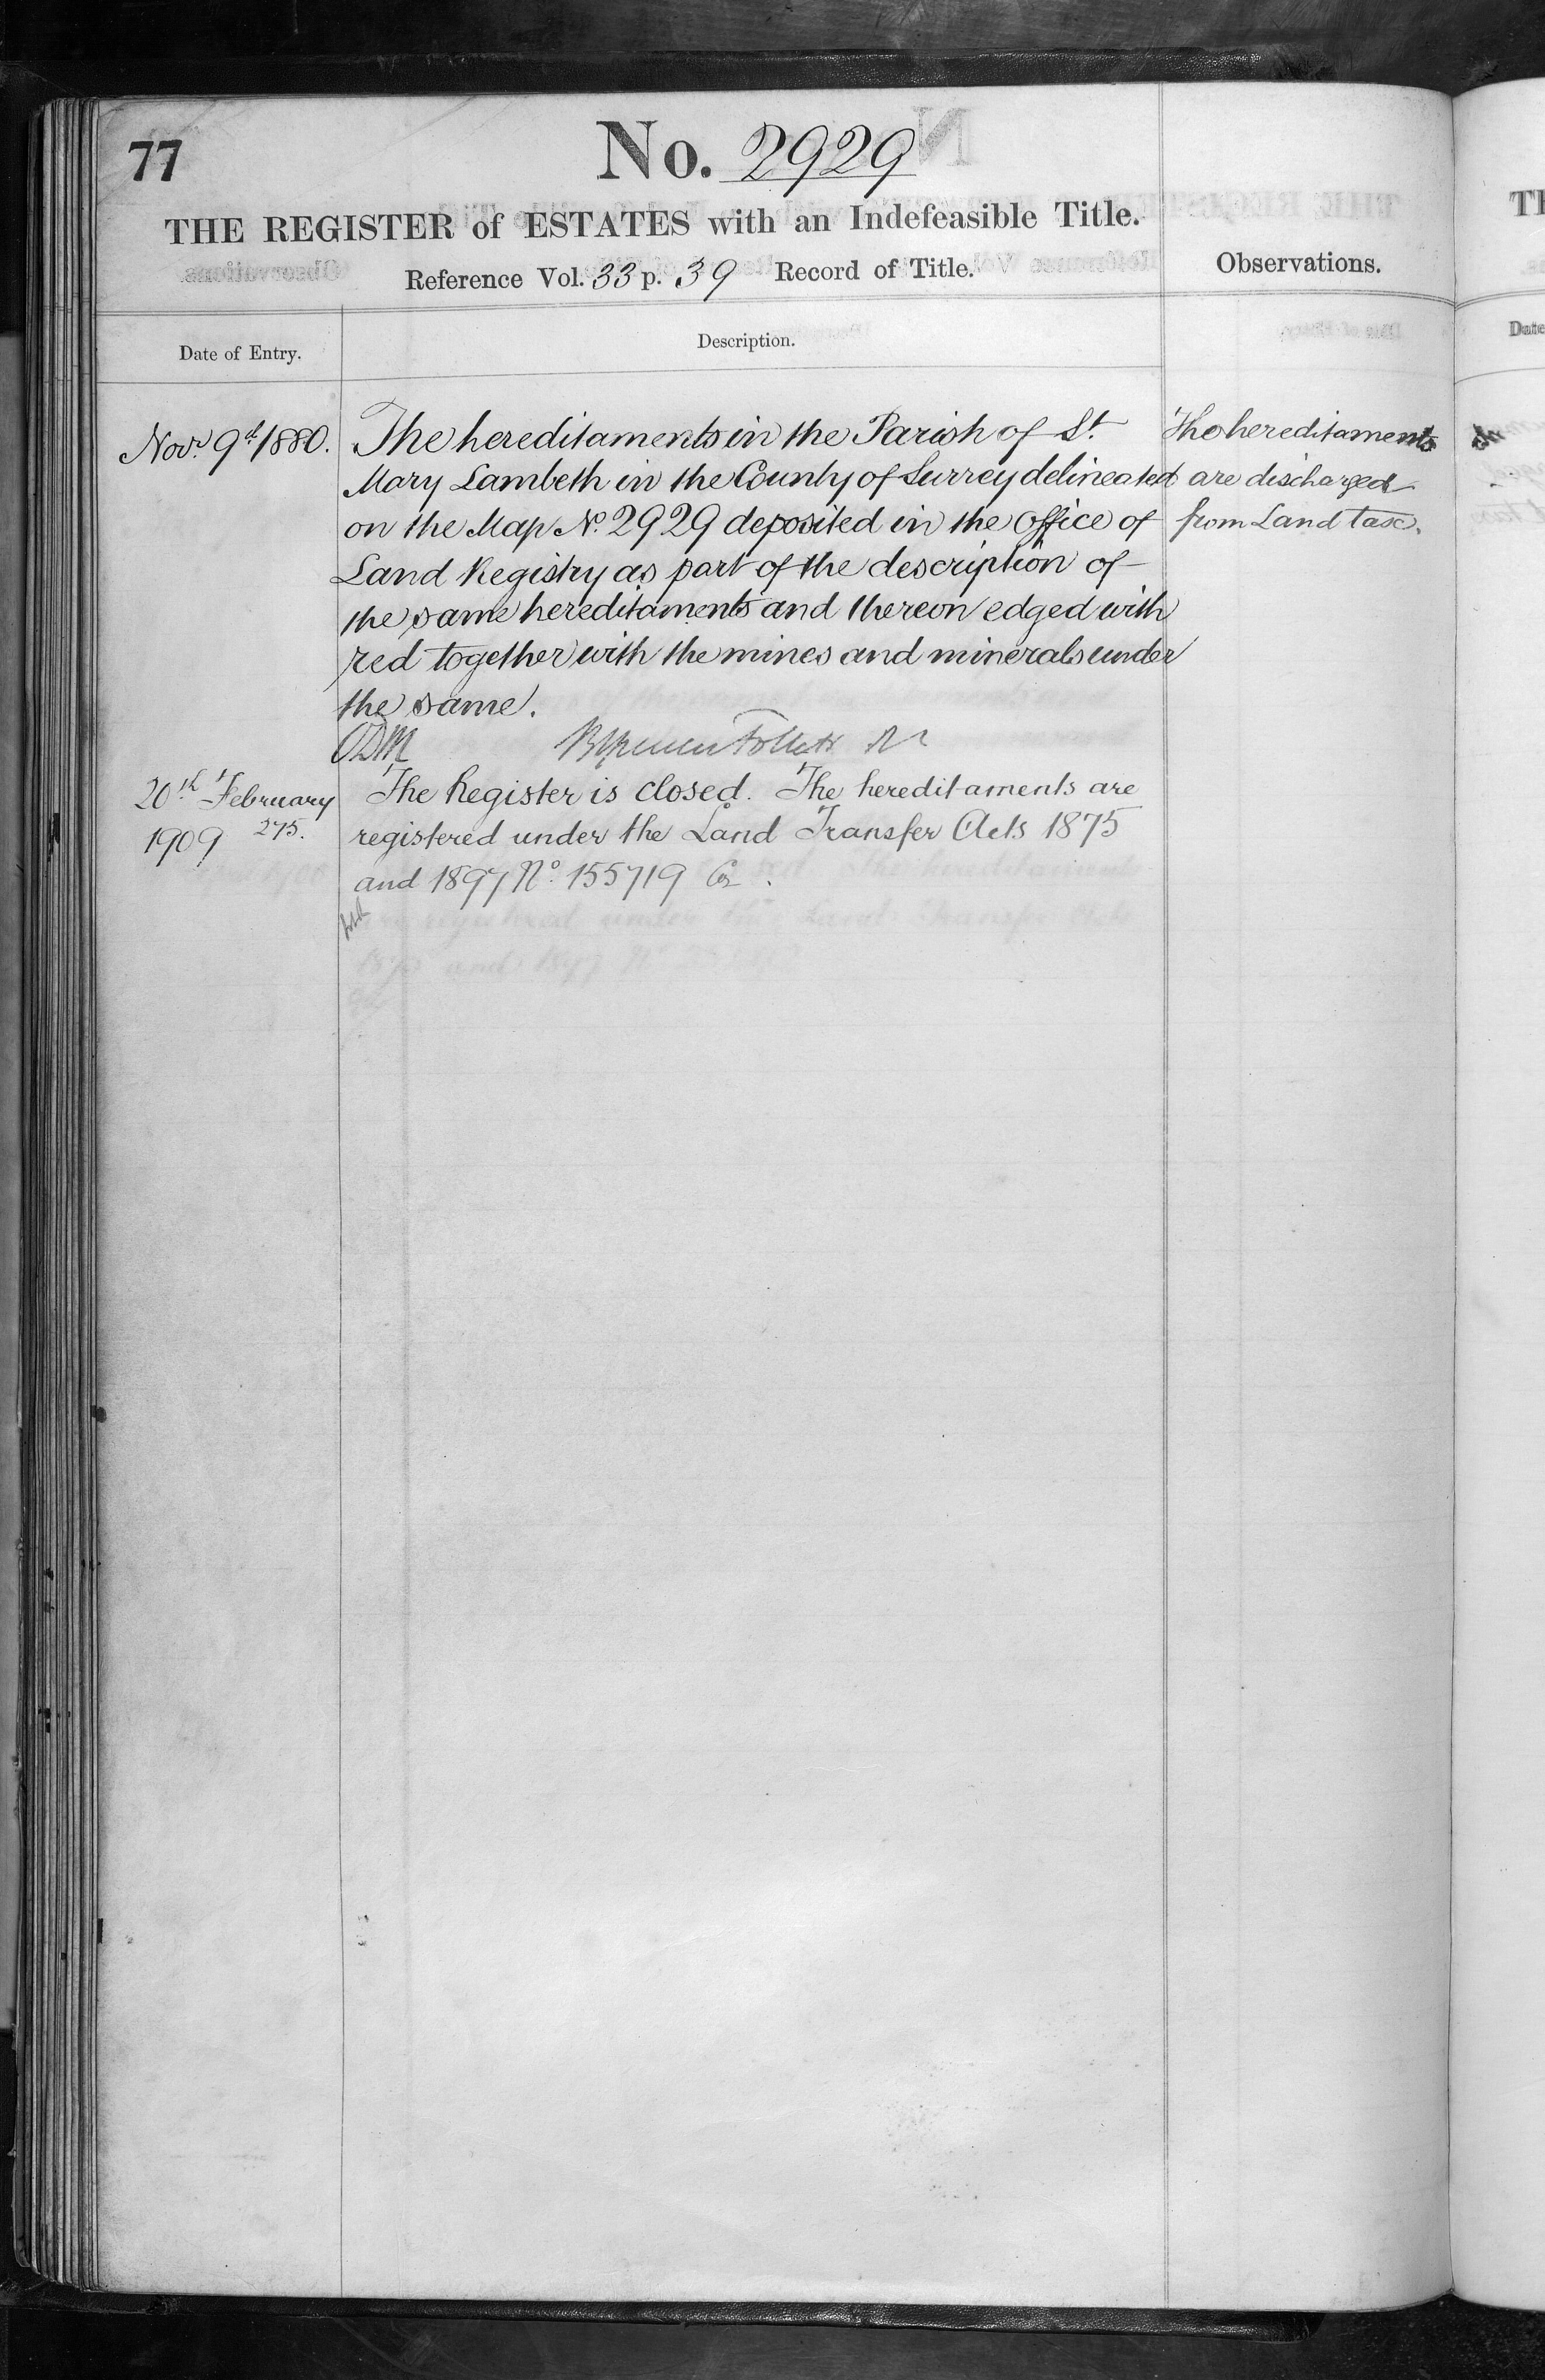 77
No. 2929
THE REGISTER of ESTATES with an Indefeasible Title.
Reference Vol. 33 p. 39 Record of Title.
Observations.
Date of Entry.
Description.
Novr 9th 1880.
The hereditaments in the Parish of St.
Mary Lambeth in the County of Surrey delineated
on the Map No. 2929 deposited in the office of
Land Registry as part of the description of
the same hereditaments and thereon edged with
red together with the mines and minerals under
the same.
The hereditaments
are discharged
from Land tax.
20th February
1909 275.
The Register is closed. The hereditaments are
registered under the Land Transfer Acts 1875
and 1897 No. 155719
Date